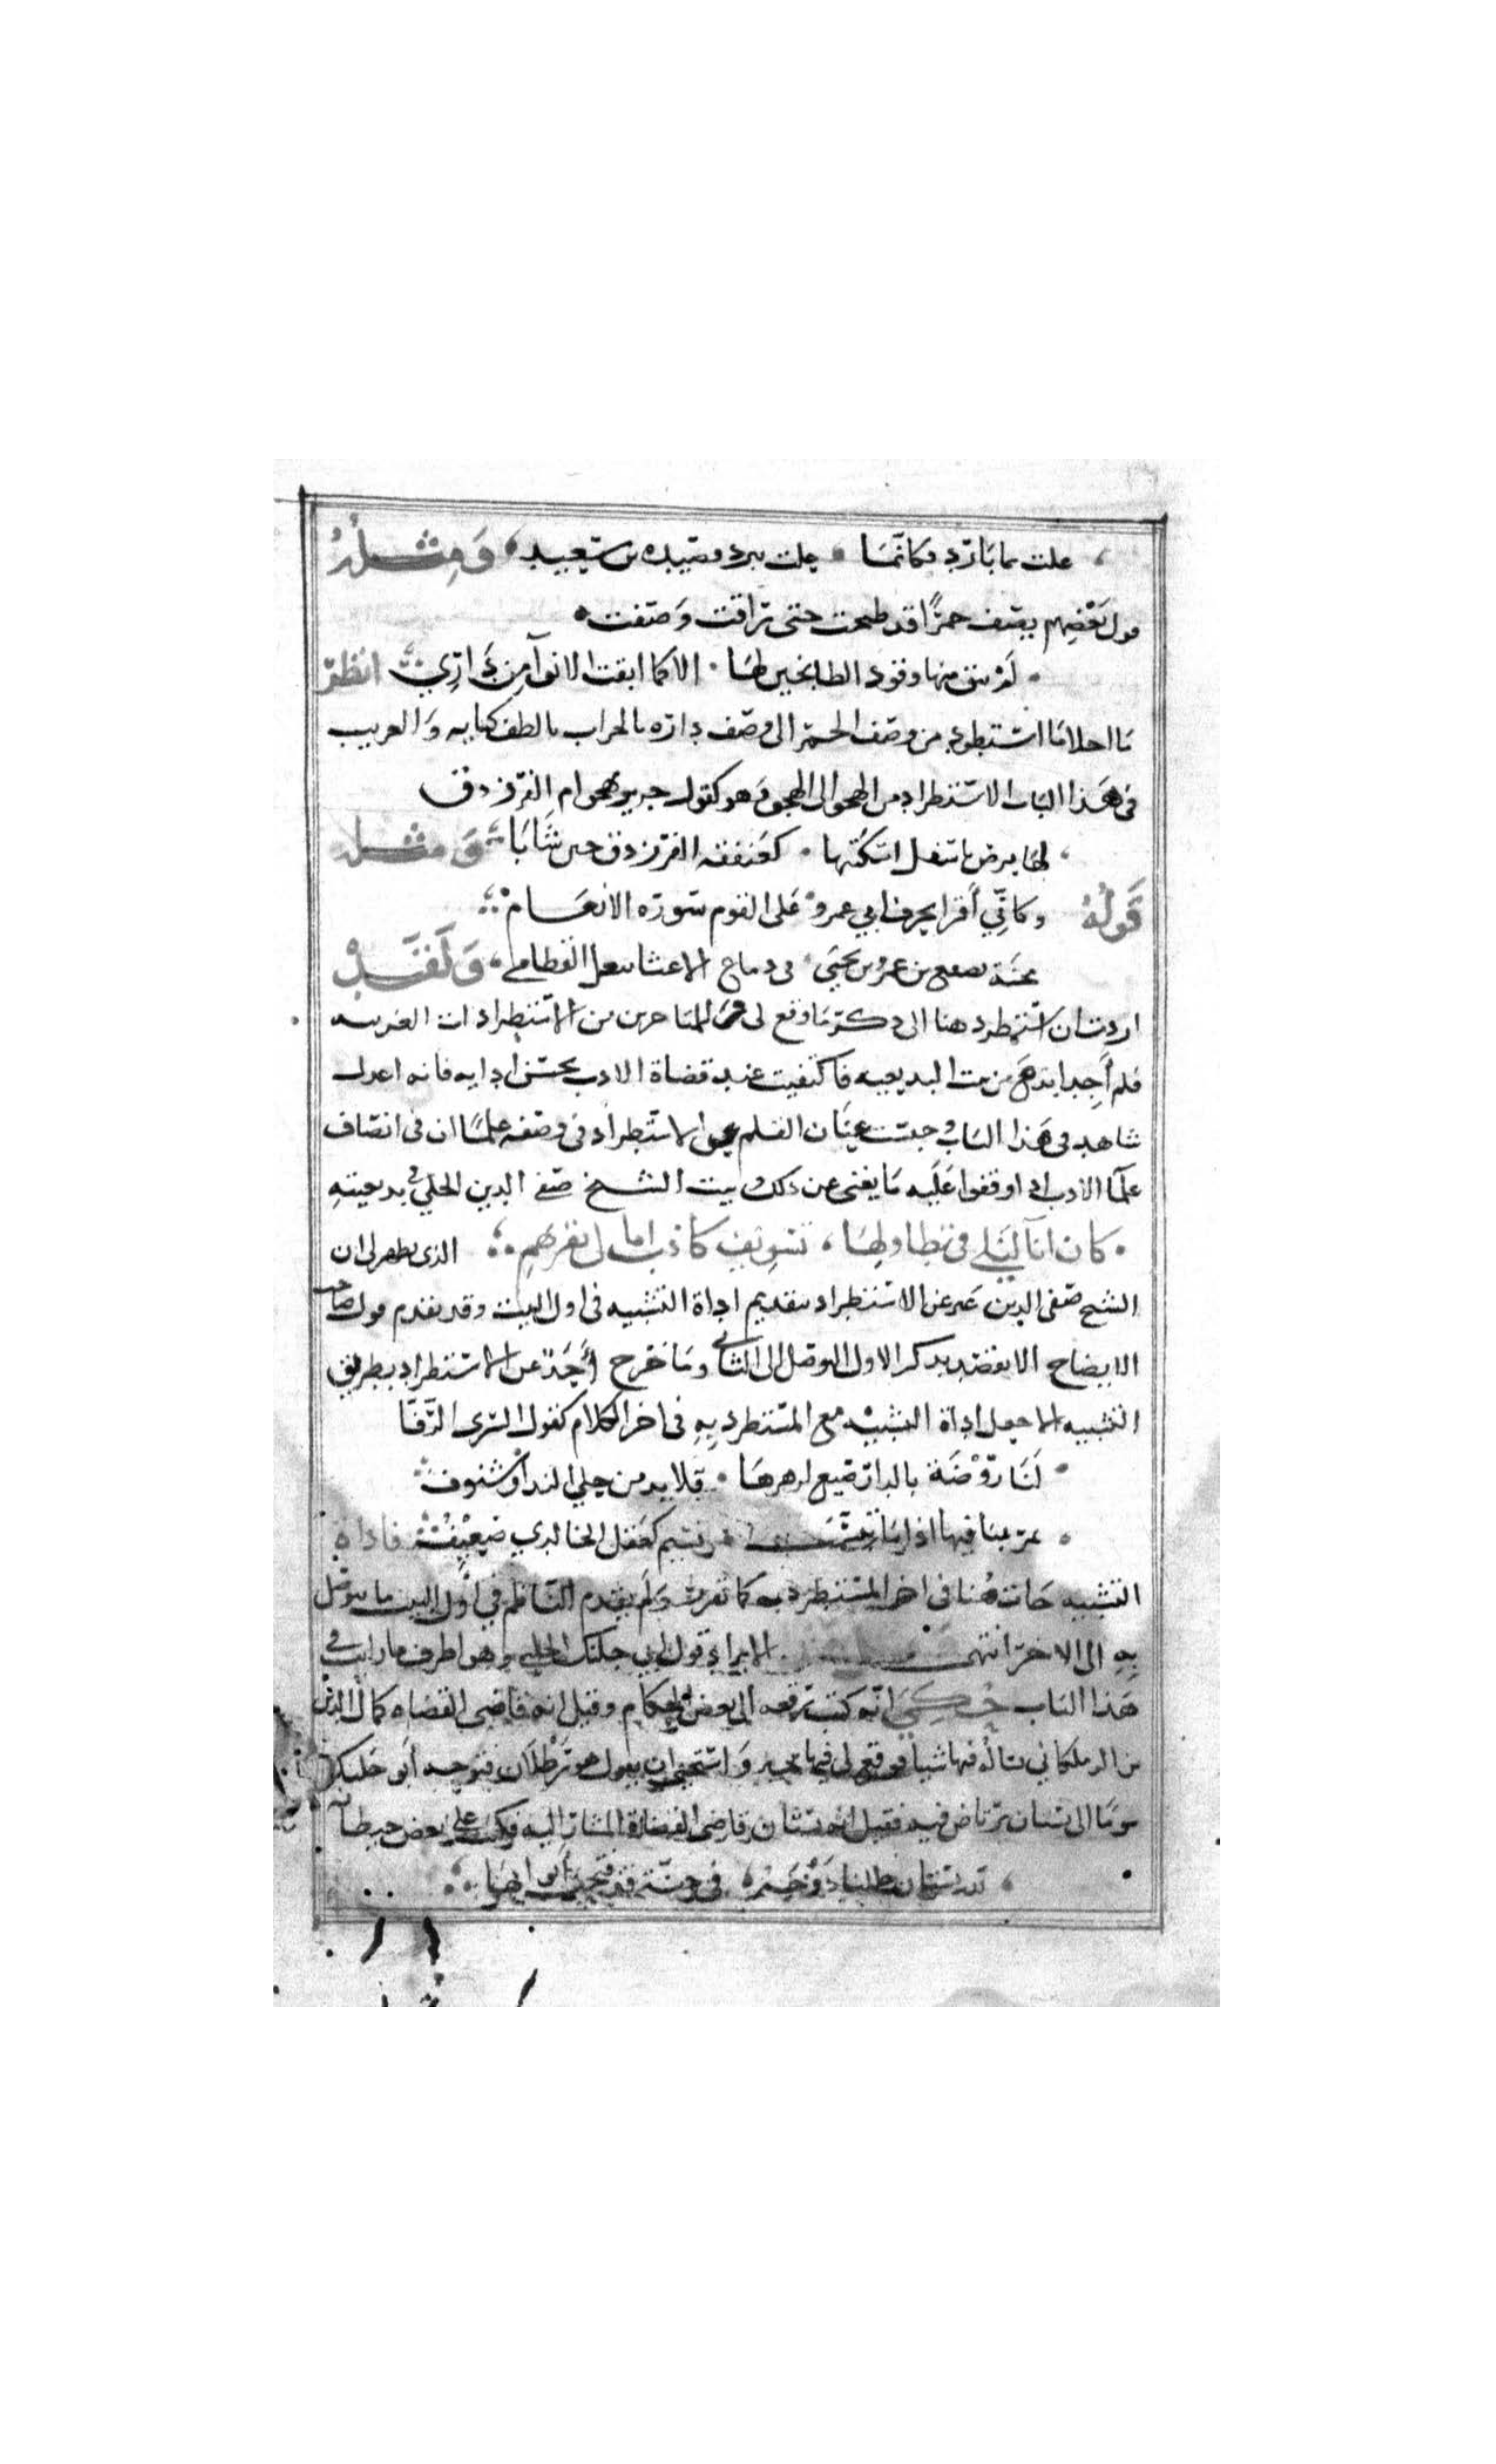 علت بما بارد فكانما حلت ببرد قصيده بن سعيد ومثله
قول بعضهم يصف خمرًا قد طبخت حتى راقت وصفت
لم يبق منها وقود الطابخين لها الا كما ابقت الانوآ من داري انظر
ما احلا ما استطرد من وصف الخمر الى وصف داره بالخراب بالطف كنايه والغريب
في هذا الباب الاستطراد من الهجو الى الهجو وهو كقول جرير يهجو ام الفرزدق
لها برص باسفل اسكتيها كعنفقة الفرزدق حين شابا ومثله
قوله وكاني أقرا بحرف ابي عمرو على القوم سورة الانعام
بن عمرو بن يحيى في دماغ الاعشا القطامي ولقد
اردت ان استطرد هنا الى ذكر ما وقع لي و للمتاخرين من الاستطرادات الغريبه
فلم أجد ابدع من بيت البديعيه فاكتفيت عند قضاة الادب بحسن ادايه فانه اعدل
شاهد في هذا الباب وحبست عنان القلم عن الاستطراد في وصفه علمًا ان في انصاف
علما الادب اذا وقفوا عليه ما يغني عن ذلك وبيت الشيخ صفي الدين الحلي في بديعيته
كان انآ ليلي في تطاولها تسويف كاذب امالي بقربهم الذي يظهر لي ان
الشيخ صفي الدين عبر عن الاستطراد بتقديم اداة التشبيه في اول البيت وقد تقدم قول صاحب
الايضاح الا يقصد بذكر الاول التوصل الى الثاني وما خرج أحد عن الاستطراد بطريق
التشبيه الا جعل اداة التشبيه مع المستطرد به في اخر الكلام كقول السرى الرفا
لنا روضة بالدار صيغ لزهرها قلايد من حلي الندا وشنوف
يمر بنا فيها اذا ما تبسمت نسيم كعقل الخالدي ضعيف فاداة
التشبيه جات هنا في اخر المستطرد به كما تقرر ولم يقدم الناظم في أول البيت ما يتوصل
به الى الاخر انتهى الايراد قول ابي جلنك الحلبي وهو اطرف ما رايت في
هذا الباب حكي انه كتب رقعه الى بعض الحكام وقيل انه قاضي القضاه كمال الدين
بن الزملكاني يساله فيها شيأ فوقع له فيها بخبز واستحيى ان يقول هو رطلان فتوجه أبو جلنك
يوما الى بستان يرتاض فيه فقيل انه بستان قاضي القضاة المشار اليه فكتب على بعض حيطانه
لله بستان حللنا دوحه في جنة قد فتحت أبوابها